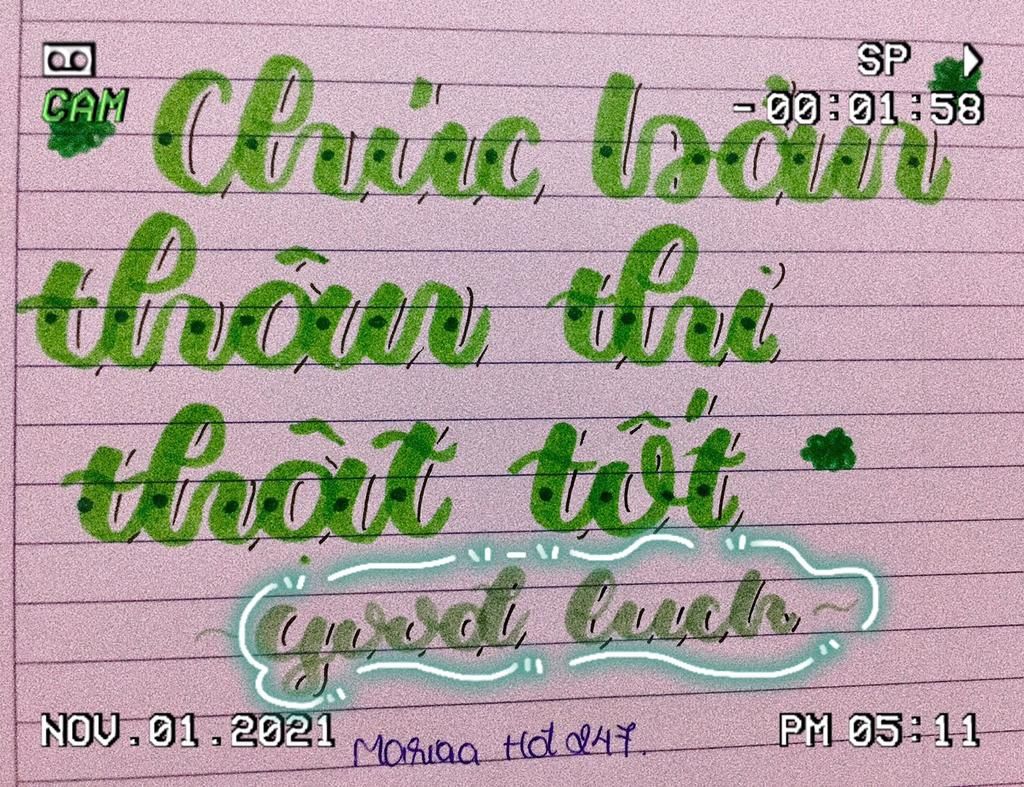 SP
CAM
-00:01:58
Chúc bản
thân thi
thật tốt
good luck
NOV.01.2021
PM 05:11